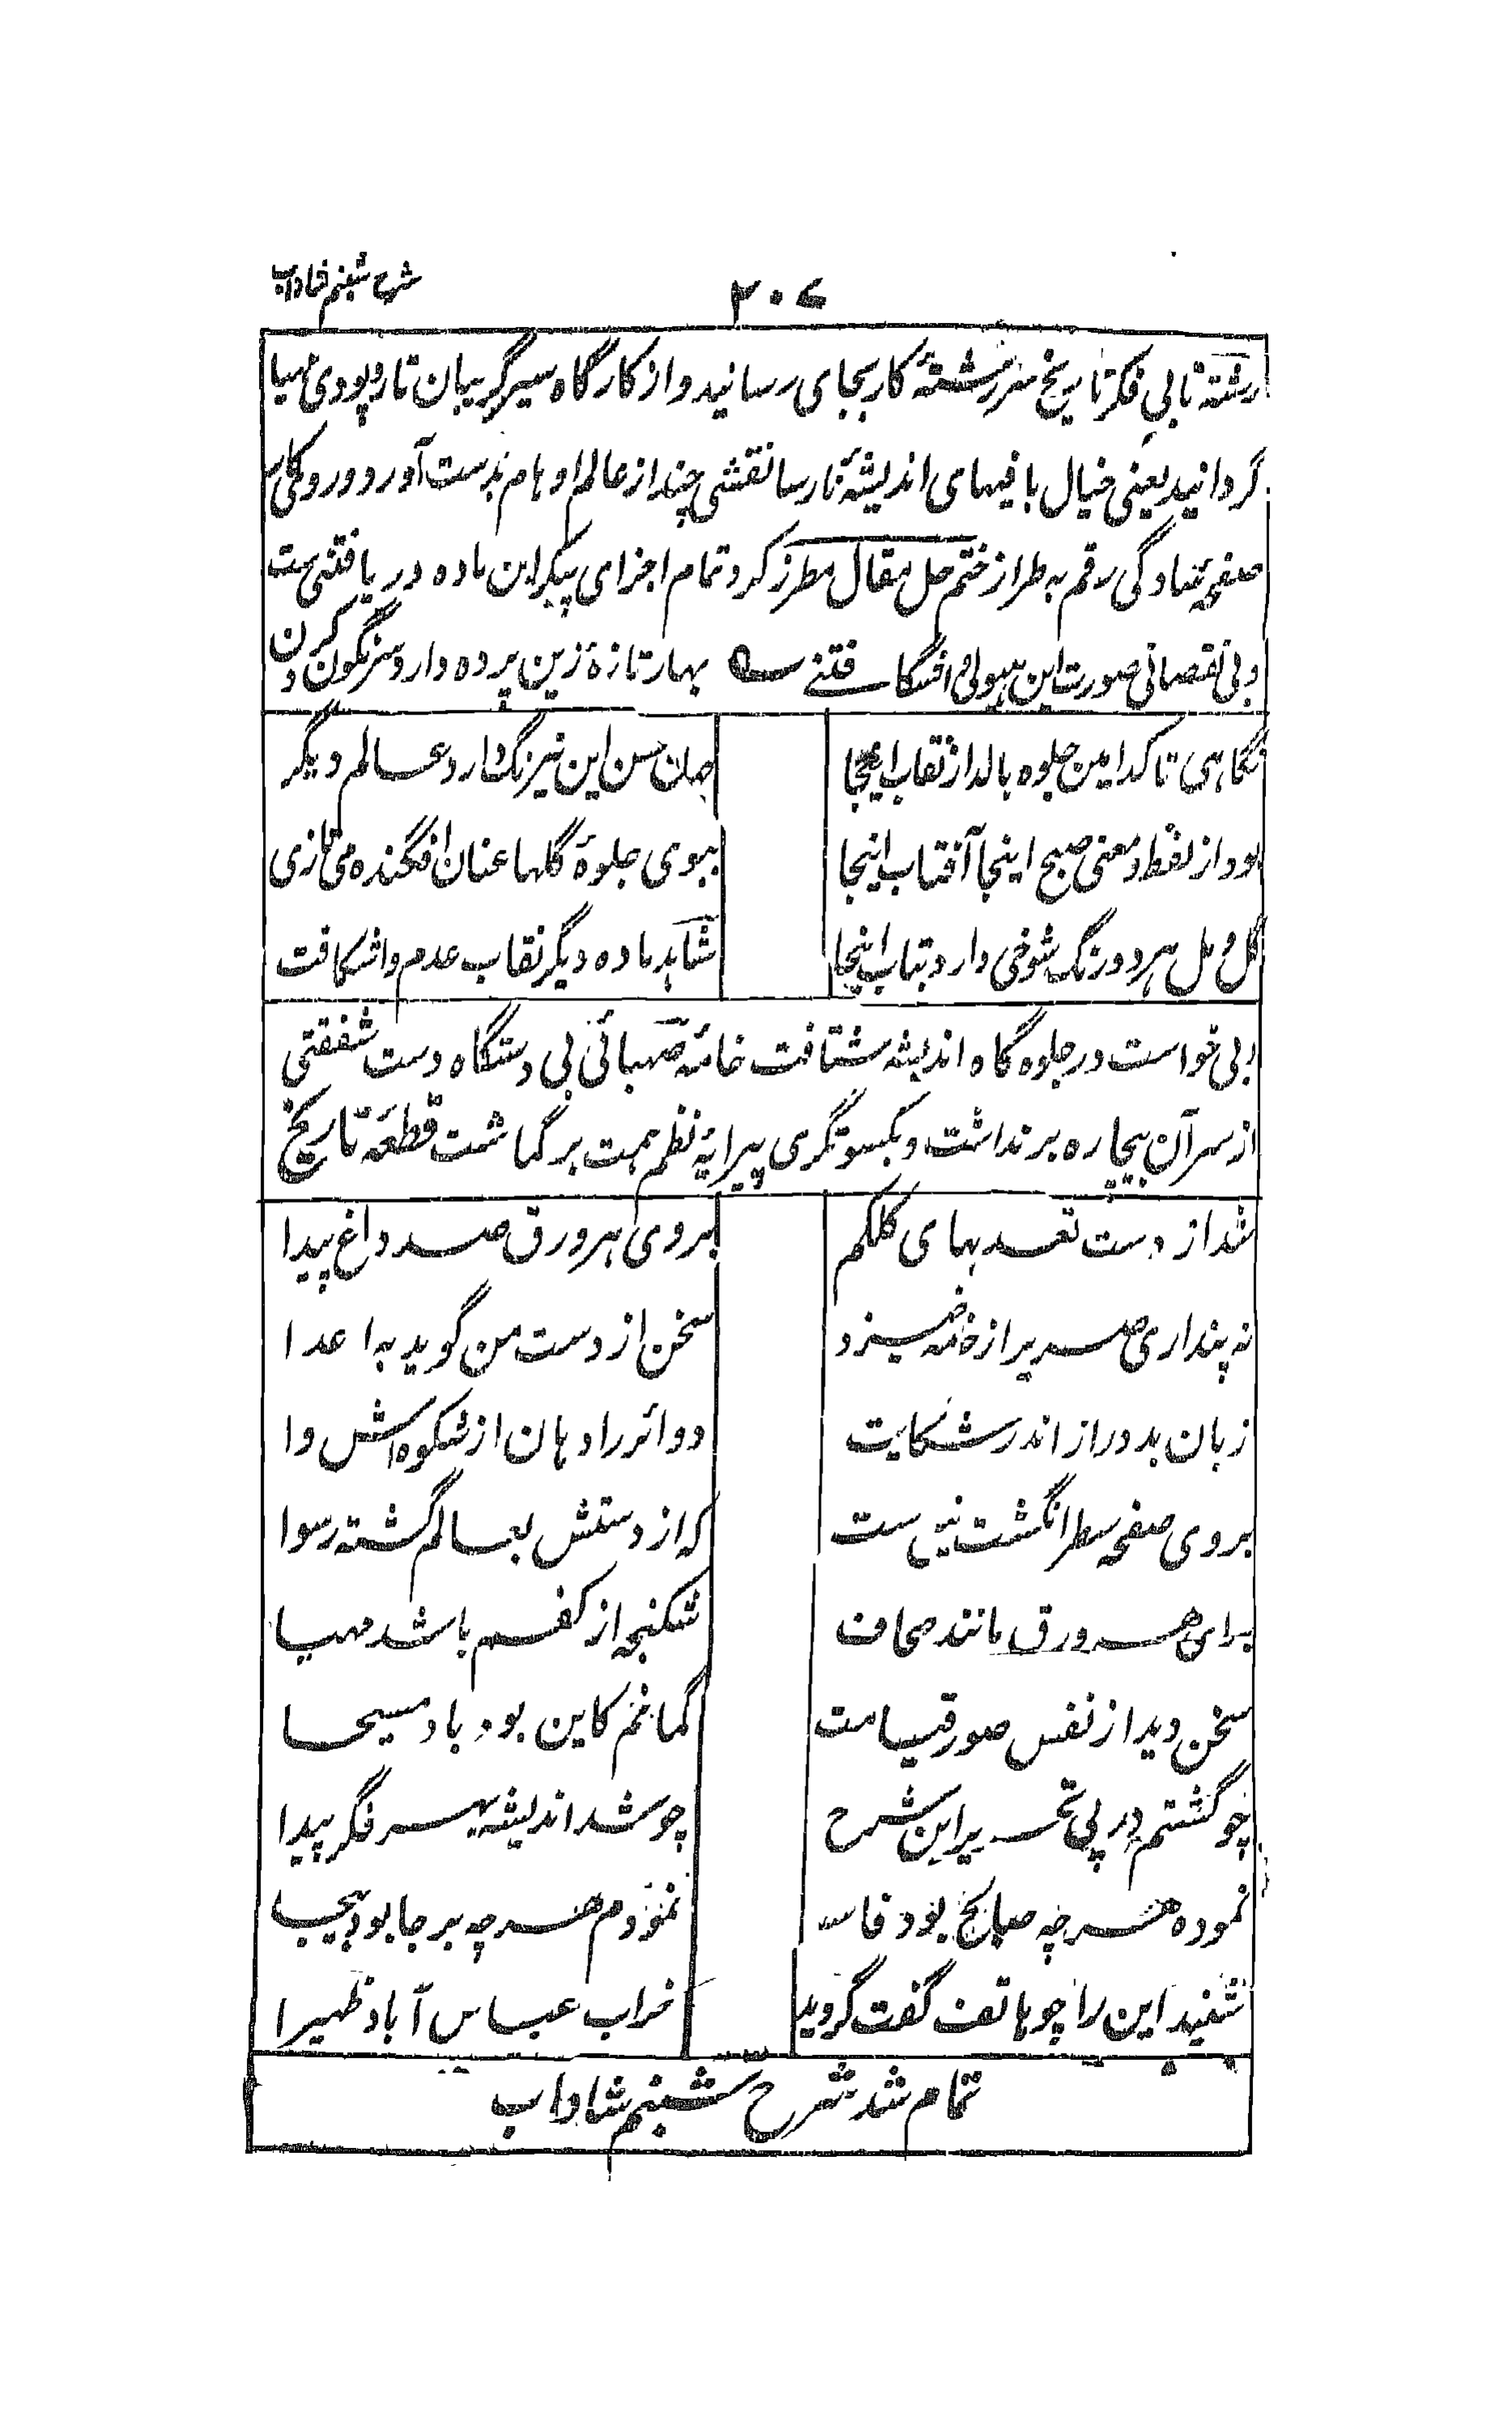 ۳۰۷
شرح شبنم شاداب
رشتهٔ تابی فکر تاریخ سررشتهٔ کار بجای رسانید و از کارگاه سیر گریبان تار و پودی مهیا
گردانید یعنی خیال بافیهای اندیشهٔ نارسا نقشی چند از عالم اوهام بدست آورد و روکار
صفحه بسادگی رقم به طراز ختم حل مقال مطرز کرد تمام اجزای پیکر این ماده دریافتنی ست
و بی نقصانی صورت این هیولی افگافتنے بهار تازهٔ زین پرده دارد سرنگون کردن
نگاهی تا کدامین جلوه بالد از نقاب اینجا جهان حسن این نیرنگ دارد عالم دیگر
بود از لفظ و معنی صبح اینجا آفتاب اینجا ببوی جلوهٔ گلها عنان افگنده می تازی
گل و مل هر دو رنگ شوخی دارد بتاب اینجا شاهد ماده دیگر نقاب عدم واشکافت
و بی خواست در جلوه گاه اندیشه شتافت خامهٔ صهبائی بی دستگاه دست شفقتی
از سر آن بیچاره برنداشت و بکسوتگری پیرایهٔ نظم همت برگماشت قطعه تاریخ
شد از دست تعدیهای کلکم بروی هر ورق صد داغ پیدا
نه پنداری صریر از خامه خیزد سخن از دست من گوید به اعدا
زبان بد دراز اندر شکایت دوائر را دهان از شکوه اش وا
بروی صفحه سطر انگشت نیش ست که از دستش بعالم گشته رسوا
برای هر ورق مانند صحاف شکنجه از کفم باشد مهیا
سخن دید از نفس صور قیامت گمانم کاین بود باد مسیحا
چو گشتم در پی تحریر این شرح چو شد اندیشه بهر فکر پیدا
نموده هر چه صالح بود فاسد نمودم هر چه برجا بود بیجا
شنید این را چو هاتف گفت گردید خراب عباس آباد ظهیرا
تمام شد شرح شبنم شاداب